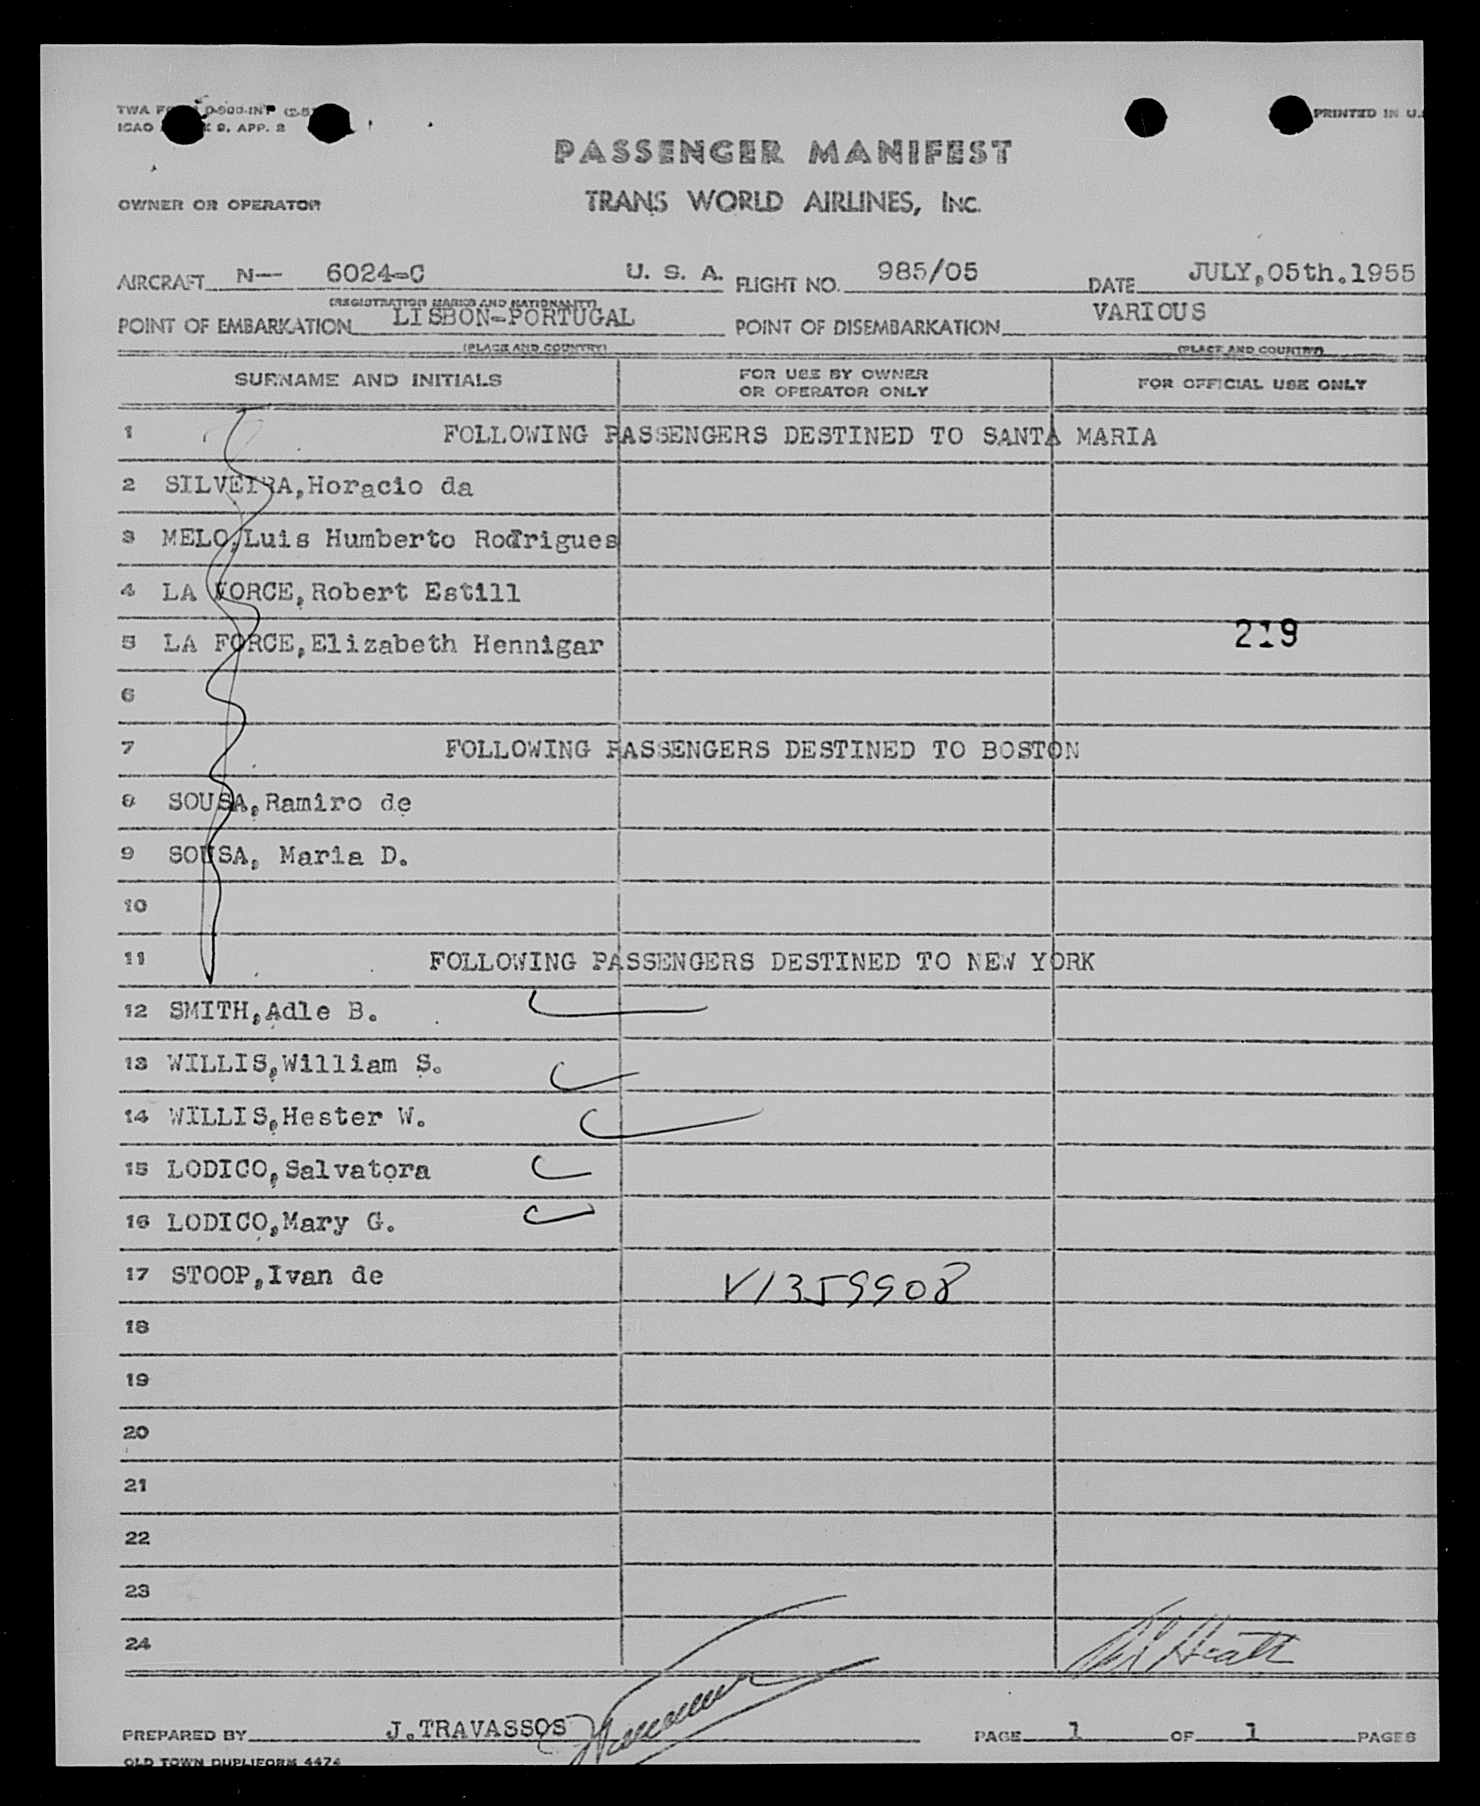 PASSENGER MANIFEST
OWNER OR OPERATOR TRANS WORLD AIRLINES, INC.
AIRCRAFT N-- 6024-C U. S. A. FLIGHT NO. 985/05 DATE JULY,05th.1955
(REGISTRATION MARKS AND NATIONALITY)
POINT OF EMBARKATION LISBON-PORTUGAL POINT OF DISEMBARKATION VARIOUS
(PLACE AND COUNTRY) (PLACE AND COUNTRY)
SURNAME AND INITIALS FOR USE BY OWNER OR OPERATOR ONLY FOR OFFICIAL USE ONLY
1 FOLLOWING PASSENGERS DESTINED TO SANTA MARIA
2 SILVEIRA,Horacio da
3 MELO,Luis Humberto Rodrigues
4 LA FORCE,Robert Estill
5 LA FORCE,Elizabeth Hennigar 219
6
7 FOLLOWING PASSENGERS DESTINED TO BOSTON
8 SOUSA,Ramiro de
9 SOUSA, Maria D.
10
11 FOLLOWING PASSENGERS DESTINED TO NEW YORK
12 SMITH,Adle B.
13 WILLIS,William S.
14 WILLIS,Hester W.
15 LODICO,Salvatora
16 LODICO,Mary G.
17 STOOP,Ivan de V1359908
18
19
20
21
22
23
24
PREPARED BY J.TRAVASSOS PAGE 1 OF 1 PAGES
OLD TOWN DUPLIFORM 4474